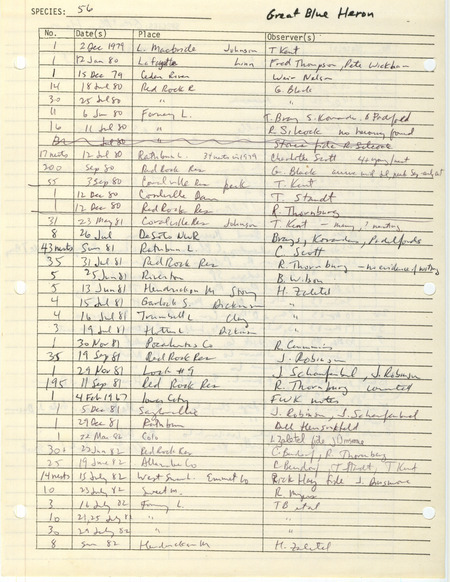 SPECIES: 56 Great Blue Heron
No. Date(s) Place Observer(s)
1 2 Dec 1979 L. Macbride Johnson T. Kent
1 12 Jan 80 Lafayette Linn Fred Thompson, Pete Wickham
1 15 Dec 79 Cedar River Weir Nelson
14 18 Jul 80 Red Rock R G. Black
30 25 Jul 80 " "
11 6 Jun 80 Forney L. T. Bray S. Padelford
16 11 Jul 80 " R. Silcock no
17 nests 12 Jul 80 Rathbun L. 39 nests in 1979 Charlotte Scott
200 Sep 80 Red Rock Res G. Black
55 3 Sep 80 Coralville Res peak T. Kent
1 12 Dec 80 Coralville Dam T. Staudt
1 12 Dec 80 Red Rock Res R. Thornburg
31 23 May 81 Coralville Res Johnson T. Kent - many, ? nesting
8 26 Jul DeSoto NWR Brays, Padelfords
43 nests Sum 81 Rathbun L C. Scott
35 31 Jul 81 Red Rock Res R. Thornburg - no evidence of nesting
5 25 Jun 81 Riverton B. Wilson
5 13 Jun 81 Hendrickson M Story H. Zaletel
4 15 Jul 81 Garlock S. Dickinson "
4 16 Jul 81 Trumbull L Clay "
3 19 Jul 81 Dickinson "
1 30 Nov 81 Pocahontas Co R. Cummins
35 19 Sep 81 Red Rock Res J. Robinson
1 29 Nov 81 Lock #9 J. Schaufenbuel, J. Robinson
195 11 Sep 81 Red Rock Res R. Thornburg counted
1 4 Feb 1967 Iowa City FWK notes
1 5 Dec 81 Saylorville J. Robinson, J. Schaufenbuel
29 Dec 81 Rathbun
1 22 Mar 82 Colo Zaletel fide J Dinsmore
30+ 22 Jun 82 Red Rock Res C. Bendorf, R. Thornburg
25 19 June 82 Allamakee Co C. Bendorf, T. Staudt, T. Kent
14 nests 15 July 82 West Swan L. Emmet Co Rick Hay fide J. Dinsmore
10 23 July 82 Sweet M. R Myers
3 16 July 82 Forney L. TB et al
10 21, 25 July 82 " "
30 29 July 82 " "
8 Sum 82 Hendrickson M H. Zaletel